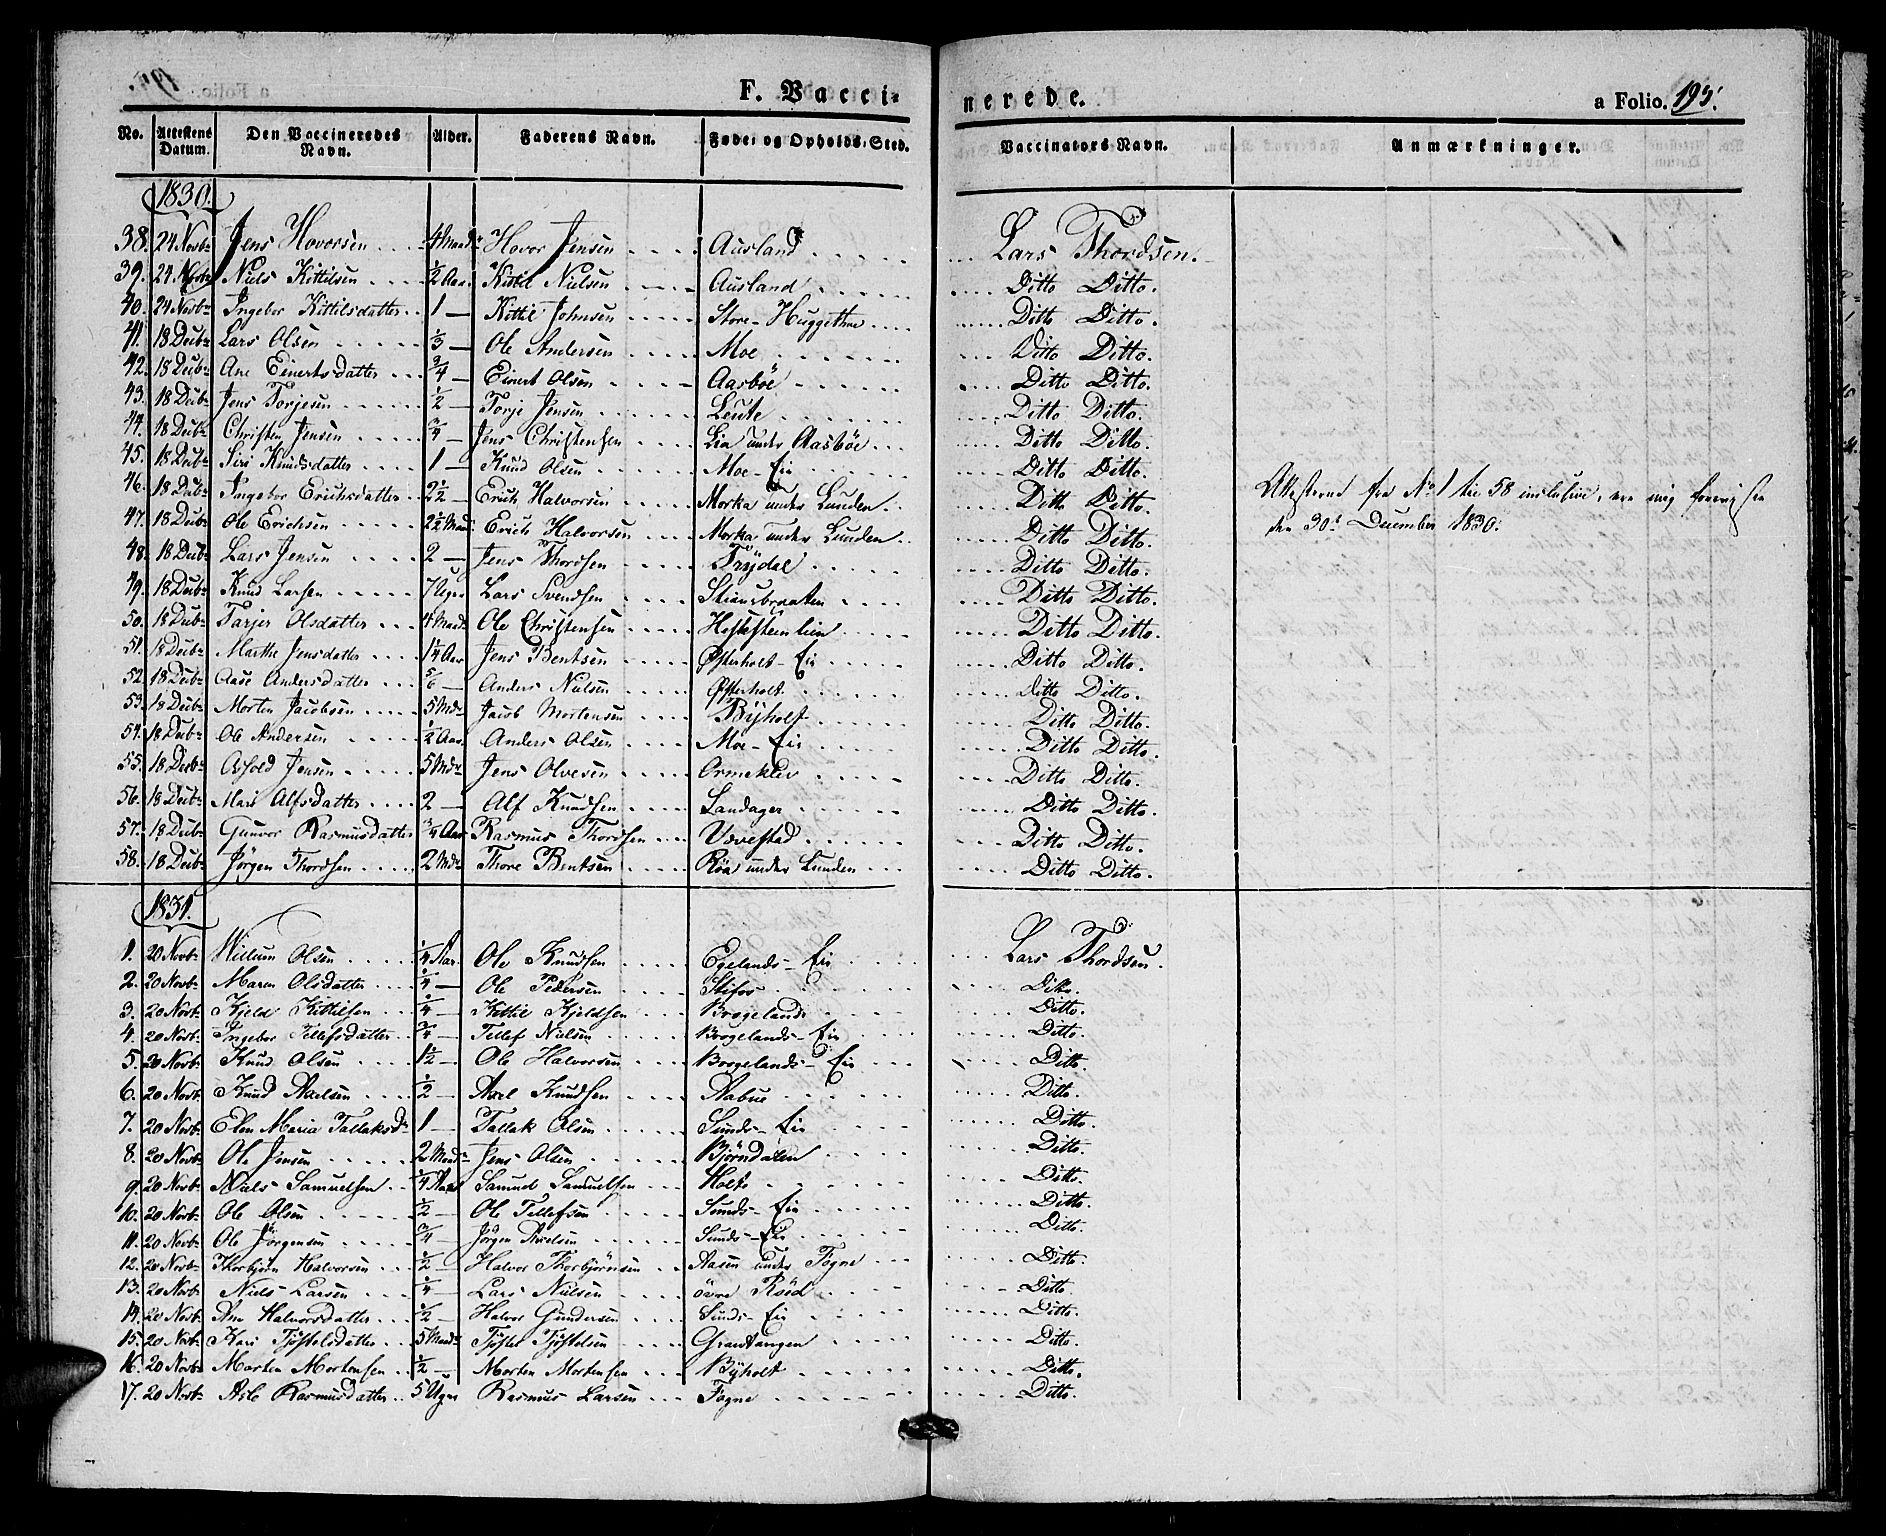 F. Vaccinerede.
a Folio. 195.
No. | Attestens Datum. | Den Vaccineredes Navn. | Alder. | Faderens Navn. | Føde- og Opholds-Sted. | Vaccinators Navn. | Anmærkninger.
1830.
38. 24 Novbr Jens Hovorsen 4 Maadr Hovor Jensen Ausland Lars Thordsen.
39. 24 Novbr Niels Kittilsen 1/2 Aar Kittil Nielsen Ausland Ditto Ditto.
40. 24 Novbr Ingebor Kittilsdatter 1 — Kittil Johnsen Store-Huggethae Ditto Ditto.
41. 18 Decbr Lars Olsen 1/3 — Ole Andersen Moe Ditto Ditto.
42. 18 Decbr Ane Einertsdatter 3/4 — Einert Olsen Aasböe Ditto Ditto.
43. 18 Decbr Jens Torjesen 1/2 — Torje Jensen Leute Ditto Ditto.
44. 18 Decbr Christen Jensen 3/4 — Jens Christensen Lia under Aasböe Ditto Ditto.
45. 18 Decbr Siri Knudsdatter 1 — Knud Olsen Moe-Eie Ditto Ditto.
46. 18 Decbr Ingebor Erichsdatter 2 1/2 — Erich Halvorsen Morka under Lunden Ditto Ditto.
Attesterne fra No 1 til 58 inclusive, ere mig foreviste
den 30t December 1830.
47. 18 Decbr Ole Erichsen 2 1/2 Maadr Erich Halvorsen Morka under Lunden Ditto Ditto.
48. 18 Decbr Lars Jensen 2 — Jens Thordsen Frydal Ditto Ditto.
49. 18 Decbr Knud Larsen 7 Uger Lars Svendsen Stiansbraaten Ditto Ditto.
50. 18 Decbr Tarjer Olsdatter 4 Maadr Ole Christensen Hestestemlien Ditto Ditto.
51. 18 Decbr Marthe Jensdatter 1 1/4 Aar Jens Bentsen Østerholt-Eie Ditto Ditto.
52. 18 Decbr Aase Andersdatter 5/6 — Anders Nielsen Østerholt Ditto Ditto.
53. 18 Decbr Morten Jacobsen 5 Mdr Jacob Mortensen Byholt Ditto Ditto.
54. 18 Decbr Ole Andersen 1/2 Aar Anders Olsen Moe-Eie Ditto Ditto.
55. 18 Decbr Asold Jensen 5 Mdr Jens Olvesen Ormeklev Ditto Ditto.
56. 18 Decbr Mari Alfsdatter 2 — Alf Knudsen Landager Ditto Ditto.
57. 18 Decbr Gunvor Rasmusdatter 3/4 Aar Rasmus Thordsen Vævestad Ditto Ditto.
58. 18 Decbr Jörgen Thordsen 2 Mdr Thore Bentsen Röa under Lunden Ditto Ditto.
1831.
1. 20 Novbr Willum Olsen 1/4 Aar. Ole Knudsen Egelands-Eie Lars Thordsen.
2. 20 Novbr Maren Olsdatter 1/4 — Ole Pedersen Stifos Ditto.
3. 20 Novbr Kjeld Kittilsen 1/4 — Kittil Kjeldsen Brogelands Ditto.
4. 20 Novbr Ingebor Tellefsdatter 3/4 — Tellef Nielsen Brogelands-Eie Ditto.
5. 20 Novbr Knud Olsen 1 1/2 — Ole Halvorsen Brogelands-Eie Ditto.
6. 20 Novbr Knud Axelsen 1/2 — Axel Knudsen Aabue Ditto.
7. 20 Novbr Elen Maria Tallaksdr 1 — Tallak Olsen Sunds-Eie Ditto.
8. 20 Novbr Ole Jensen 2 Maadr Jens Olsen Björndalen Ditto.
9. 20 Novbr Niels Samuelsen 1/4 Aar Samuel Samuelsen Holte Ditto.
10. 20 Novbr Ole Olsen 1/2 — Ole Tellefsen Sunds-Eie Ditto.
11. 20 Novbr Ole Jörgensen 3/4 — Jörgen Axelsen Sunds-Eie Ditto.
12. 20 Novbr Thorbjörn Halvorsen 1/2 — Halvor Thorbjörnsen Aasen under Fogne Ditto.
13. 20 Novbr Niels Larsen 1/4 — Lars Nielsen övre Röed Ditto.
14. 20 Novbr Ane Halvorsdatter 1/2 — Halvor Gundersen Sunds-Eie Ditto.
15. 20 Novbr Kari Tjöstelsdatter 5 Maadr Tjöstel Tjöstelsen Grantangen Ditto.
16. 20 Novbr Morten Mortensen 1/2 — Morten Mortensen Byholt Ditto.
17. 20 Novbr Asle Rasmusdatter 5 Uger Rasmus Larsen Fogne Ditto.